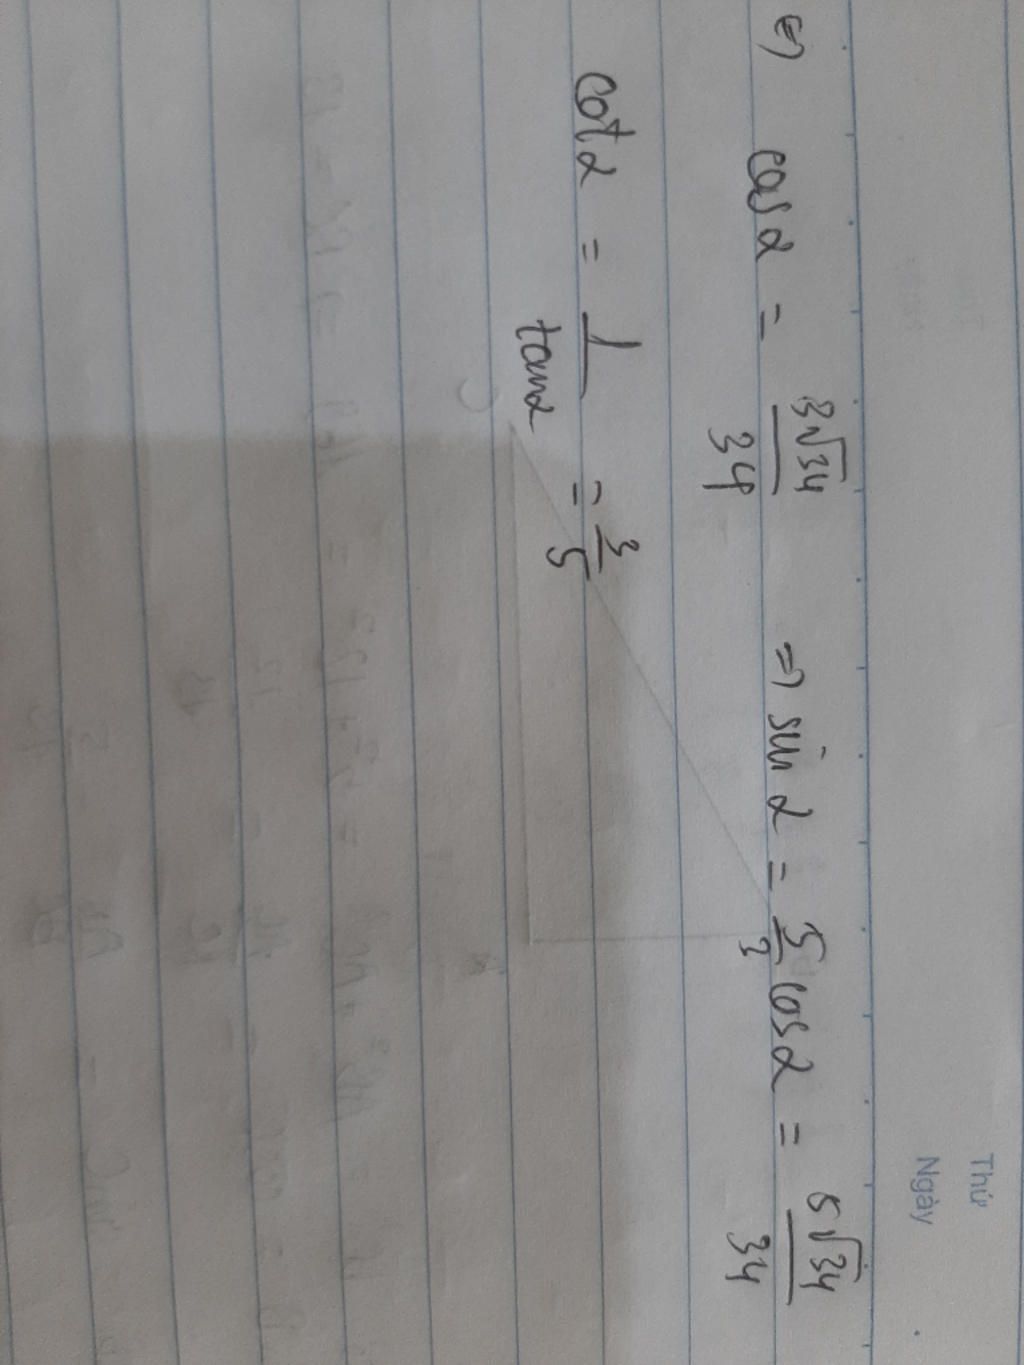 Thứ
Ngày
⇔ cos α = 3√34/34 ⇒ sin α = 5/3 cos α = 5√34/34
cot α = 1/tan α = 3/5